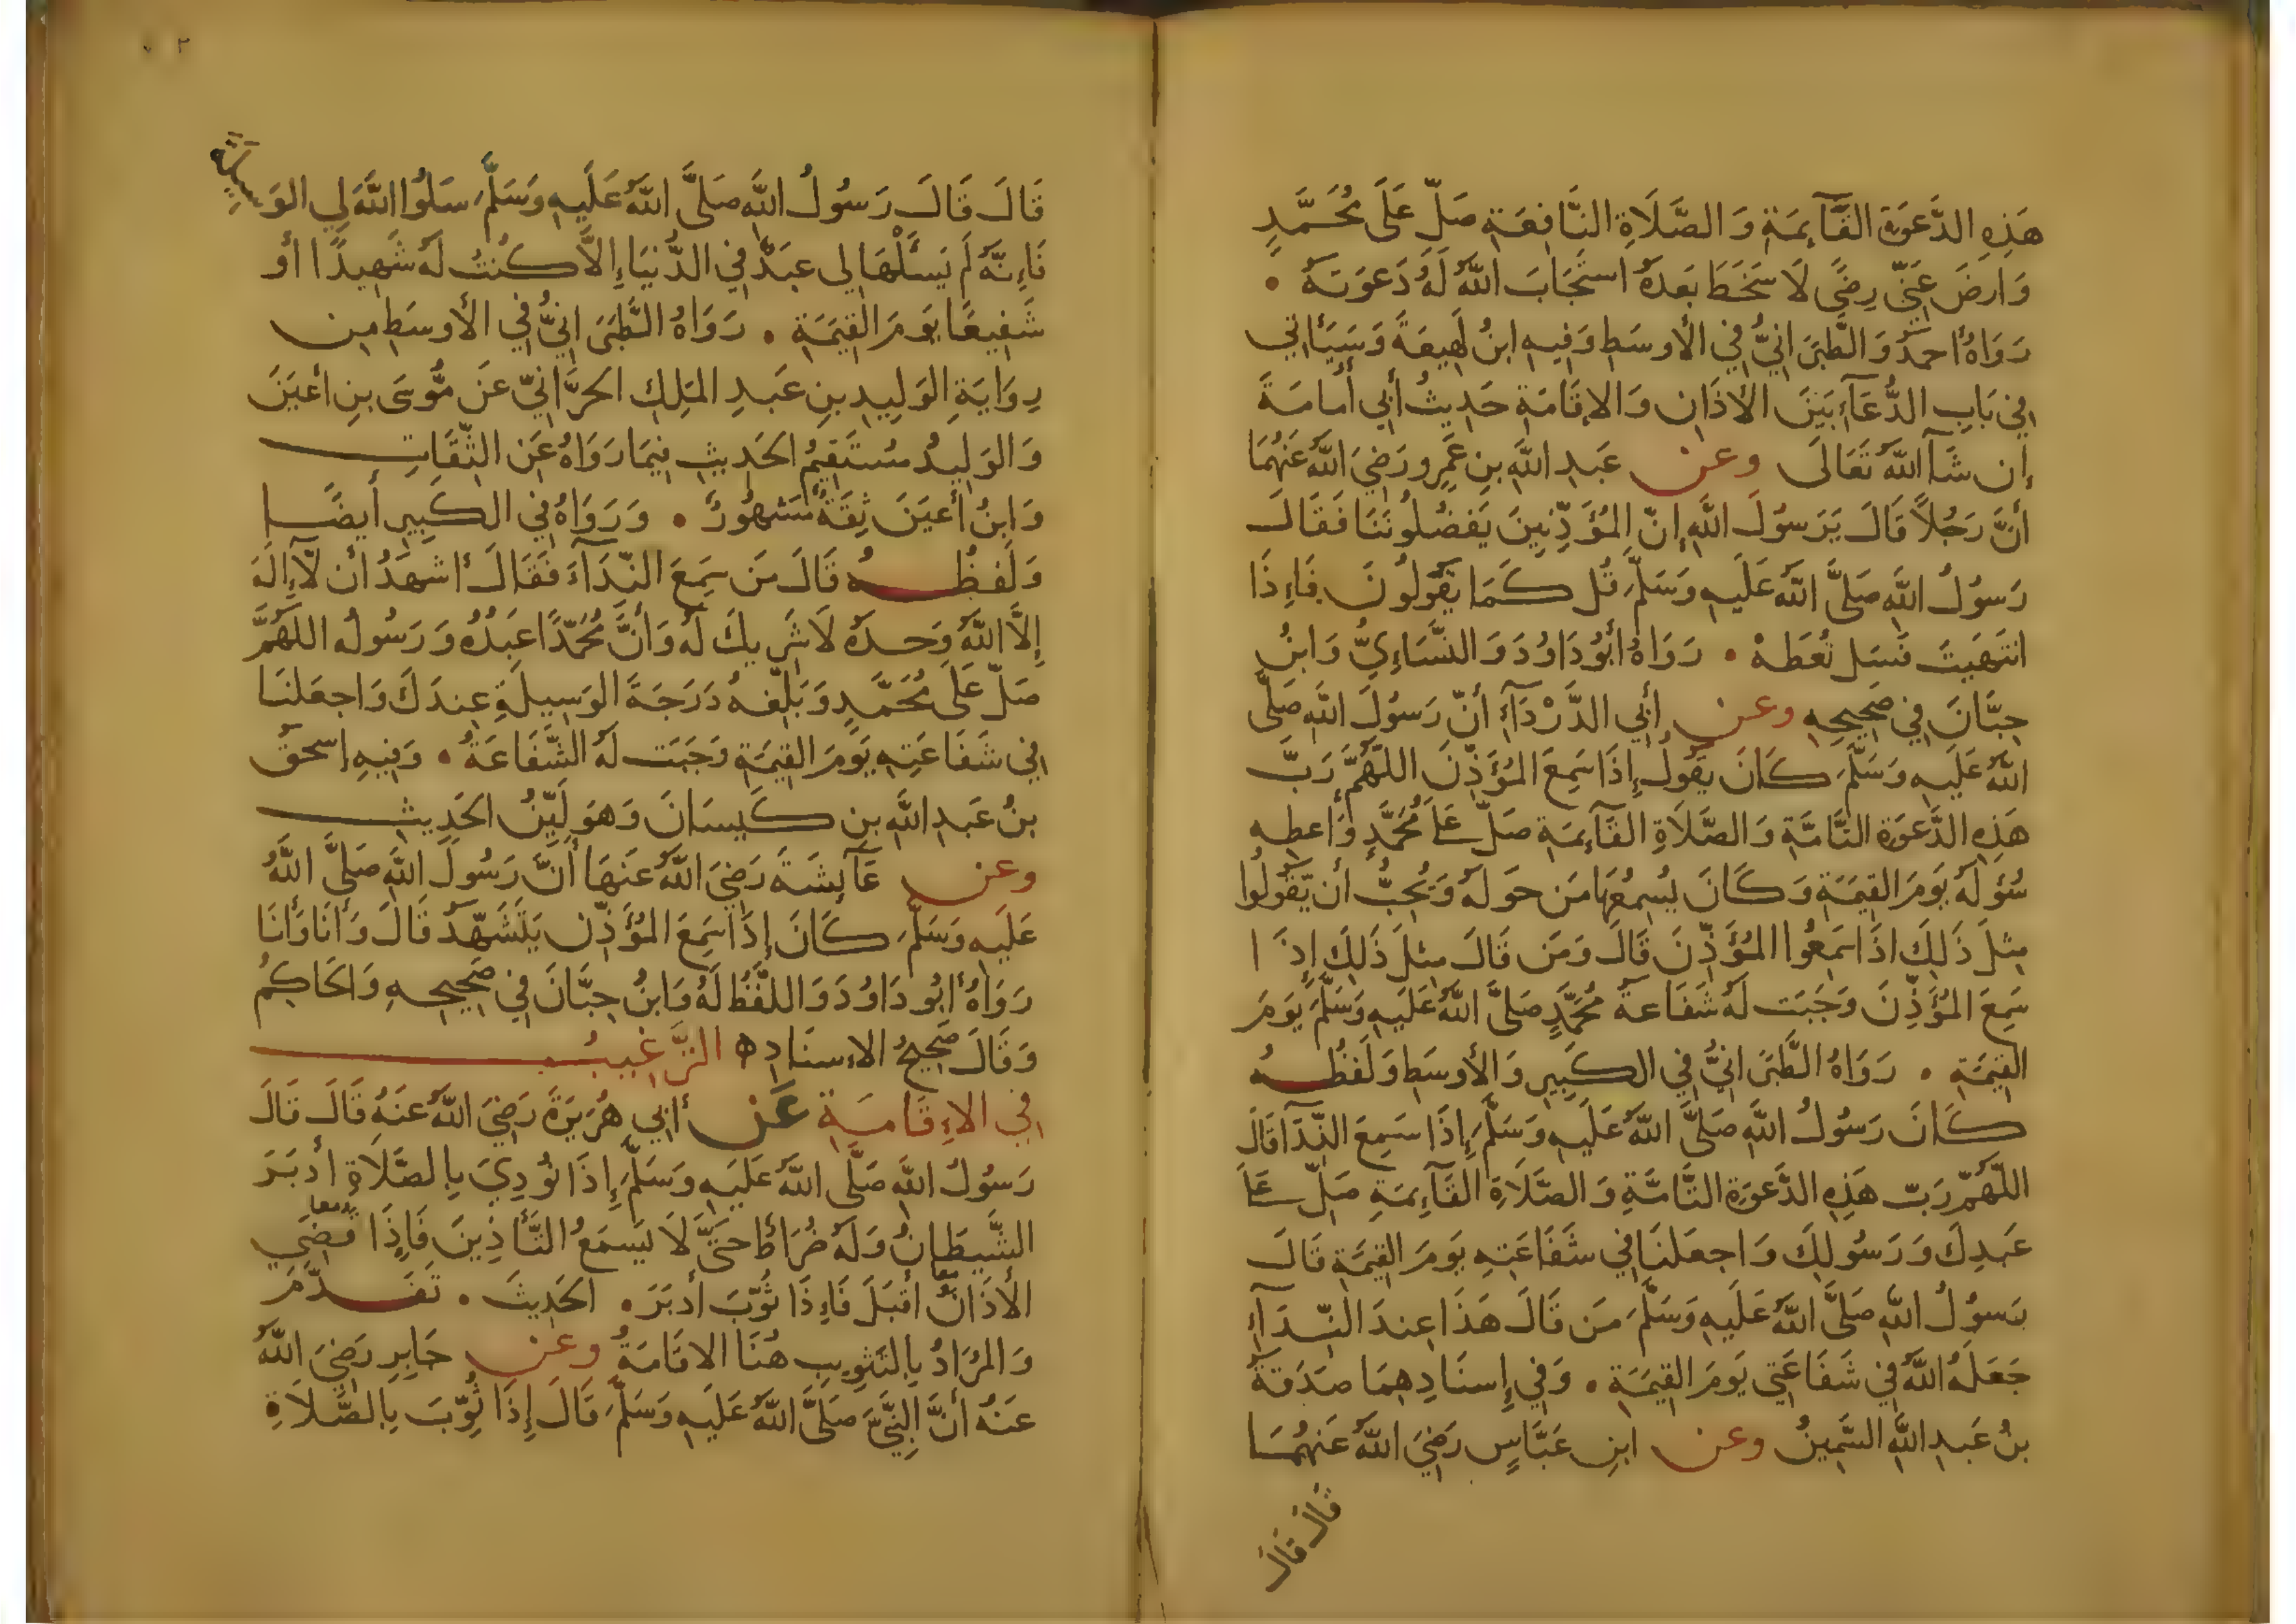 هَذِهِ الدَّعوَةِ القَآئِمَةِ وَالصَّلَاةِ النَّافِعَةِ صَلِّ عَلَى مُحَمَّدٍ
وَارضَ عَنِّي رِضًى لَا سَخَطَ بَعدَهُ استَجَابَ اللَّهُ لَهُ دَعوَتَهُ •
رَوَاهُ أحمَدُ وَالطَّبَرَانِيُّ فِي الأَوسَطِ وَفِيهِ ابنُ لَهِيعَةَ وَسَيَأتِي
فِي بَابِ الدُّعَآءِ بَينَ الأَذَانِ وَالإِقَامَةِ حَدِيثُ أَبِي أُمَامَةَ
إِن شَآ اللَّهُ تَعَالَى وعن عَبدِ اللَّهِ بنِ عَمرٍو رَضِيَ اللَّهُ عَنهُمَا
أَنَّ رَجُلاً قَالَ يَرَسُولَ اللَّهِ إِنَّ المُؤَذِّنِينَ يَفضُلُونَنَا فَقَالَ
رَسُولُ اللَّهِ صَلَّى اللَّهُ عَلَيهِ وَسَلَّمَ قُل كَمَا يَقُولُونَ فَإِذَا
انتَهَيتَ فَسَل تُعطَهْ • رَوَاهُ أَبُو دَاوُدَ وَالنَّسَاءِيُّ وَابنُ
حِبَّانَ فِي صَحِيحِهِ وعن أَبِي الدَّرْدَآءِ أَنَّ رَسُولَ اللَّهِ صَلَّى
اللَّهُ عَلَيهِ وَسَلَّمَ كَانَ يَقُولُ إِذَا سَمِعَ المُؤَذِّنَ اللَّهُمَّ رَبَّ
هَذِهِ الدَّعوَةِ التَّامَّةِ وَالصَّلَاةِ القَآئِمَةِ صَلِّ عَلَى مُحَمَّدٍ وَأَعطِهِ
سُؤلَهُ يَومَ القِيَمَةِ وَكَانَ يُسمِعُهَا مَن حَولَهُ وَيُحِبُّ أَن يَّقُولُوا
مِثلَ ذَلِكَ اذَا سَمِعُوا المُؤَذِّنَ قَالَ وَمَن قَالَ مِثلَ ذَلِكَ إِذَا
سَمِعَ المُؤَذِّنَ وَجَبَت لَهُ شَفَاعَةُ مُحَمَّدٍ صَلَّى اللَّهُ عَلَيهِ وَسَلَّمَ يَومَ
القِيَمَةِ • رَوَاهُ الطَّبَرَانِيُّ فِي الكَبِيرِ وَالأَوسَطِ وَلَفظُهُ
كَانَ رَسُولُ اللَّهِ صَلَّى اللَّهُ عَلَيهِ وَسَلَّمَ إِذَا سَمِعَ النِّدَآ قَالَ
اللَّهُمَّ رَبَّ هَذِهِ الدَّعوَةِ التَّامَّةِ وَالصَّلَاةِ القَآئِمَةِ صَلِّ عَلَى
عَبدِكَ وَرَسُولِكَ وَاجعَلنَا فِي شَفَاعَتِهِ يَومَ القِيَمَةِ قَالَ
رَسُولُ اللَّهِ صَلَّى اللَّهُ عَلَيهِ وَسَلَّمَ مَن قَالَ هَذَا عِندَ النِّدَآءِ
جَعَلَهُ اللَّهُ فِي شَفَاعَتِي يَومَ القِيَمَةِ • وَفِي إِسنَادِهِمَا صَدَقَةُ
بنُ عَبدِ اللَّهِ السَّمِينُ وعن ابنِ عَبَّاسٍ رَضِيَ اللَّهُ عَنهُمَا
قَالَ قَالَ
قَالَ قَالَ رَسُولُ اللَّهِ صَلَّى اللَّهُ عَلَيهِ وَسَلَّمَ سَلُوا اللَّهَ لِي الوَسِيلَةَ
فَإِنَّهُ لَم يَسئَلْهَا لِي عَبدٌ فِي الدُّنيَا إِلاَّ كُنتُ لَهُ شَهِيدًا أَو
شَفِيعًا يَومَ القِيَمَةِ • رَوَاهُ الطَّبَرَانِيُّ فِي الأَوسَطِ مِن
رِوَايَةِ الوَلِيدِ بنِ عَبدِ المَلِكِ الحَرَّانِيِّ عَن مُّوسَى بنِ أَعيَنَ
وَالوَلِيدُ مُستَقِيمُ الحَدِيثِ فِيمَا رَوَاهُ عَنِ الثِّقَاتِ
وَابنُ أَعيَنَ ثِقَةٌ مَشهُورٌ • وَرَوَاهُ فِي الكَبِيرِ أَيضًا
وَلَفظُهُ قَالَ مَن سَمِعَ النِّدَآءَ فَقَالَ أَشهَدُ أَن لَّآ إِلَهَ
إِلاَّ اللَّهُ وَحدَهُ لَا شَرِيكَ لَهُ وَأَنَّ مُحَمَّدًا عَبدُهُ وَرَسُولُه اللَّهُمَّ
صَلِّ عَلَى مُحَمَّدٍ وَبَلِّغهُ دَرَجَةَ الوَسِيلَةِ عِندَكَ وَاجعَلنَا
فِي شَفَاعَتِهِ يَومَ القِيَمَةِ وَجَبَت لَهُ الشَّفَاعَةُ • وَفِيهِ إِسحقُ
بنُ عَبدِ اللَّهِ بنِ كَيسَانَ وَهوَ لَيِّنُ الحَدِيثِ
وعن عَآئِشَةَ رَضِيَ اللَّهُ عَنهَا أَنَّ رَسُولَ اللَّهِ صَلَّى اللَّهُ
عَلَيهِ وَسَلَّمَ كَانَ إِذَا سَمِعَ المُؤَذِّن يَتَشَهَّدُ قَالَ وَأَنَا وَأَنَا
رَوَاهُ أَبُو دَاوُدَ وَاللَّفظُ لَهُ وَابنُ حِبَّانَ فِي صَحِيحِهِ وَالحَاكِمُ
وَقَالَ صَحِيحُ الاءِسنَادِ ه التَّرغِيبُ
فِي الاءِقَامَةِ عَن أَبِي هُرَيرَةَ رَضِيَ اللَّهُ عَنهُ قَالَ قَالَ
رَسُولُ اللَّهِ صَلَّى اللَّهُ عَلَيهِ وَسَلَّمَ إِذَا نُودِيَ بِالصَّلَاةِ أَدبَرَ
الشَّيطَانُ وَلَهُ ضُرَاطٌ حَتَّى لَا يَسمَعُ التَّأذِينَ فَإِذَا قُضِيَ
الأَذَانُ أَقبَلَ فَإِذَا ثُوِّبَ أَدبَرَ • الحَدِيثَ • تَقَدَّمَ
وَالمُرَادُ بِالتَثوِيبِ هُنَا الاقَامَةُ وعن جَابِرٍ رَضِيَ اللَّهُ
عَنهُ أَنَّ النَّبِيَّ صَلَّى اللَّهُ عَلَيهِ وَسَلَّمَ قَالَ إِذَا ثُوِّبَ بِالصَّلَاةِ